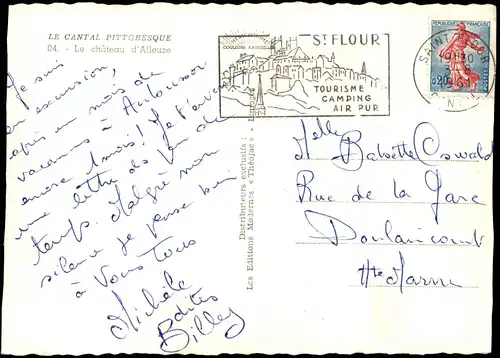 LE CANTAL PITTORESQUE
04. - Le château d'Alleuze
Je suis
en excursion,
après un mois de
vacances à
encore 1 mois! Je t'
une lettre de
temps. Malgré mon
silence je pense bien
à Vous Tous
Michèle
dites
Billey
Distributeurs exclusifs :
Les Editions Modernes « Théojac »
COULEURS NATURELLES
ST FLOUR
TOURISME
CAMPING
AIR PUR
SAINT FLOUR
0,20
Melle Babette Oswald
Rue de la Gare
Doulaincourt
Hte Marne